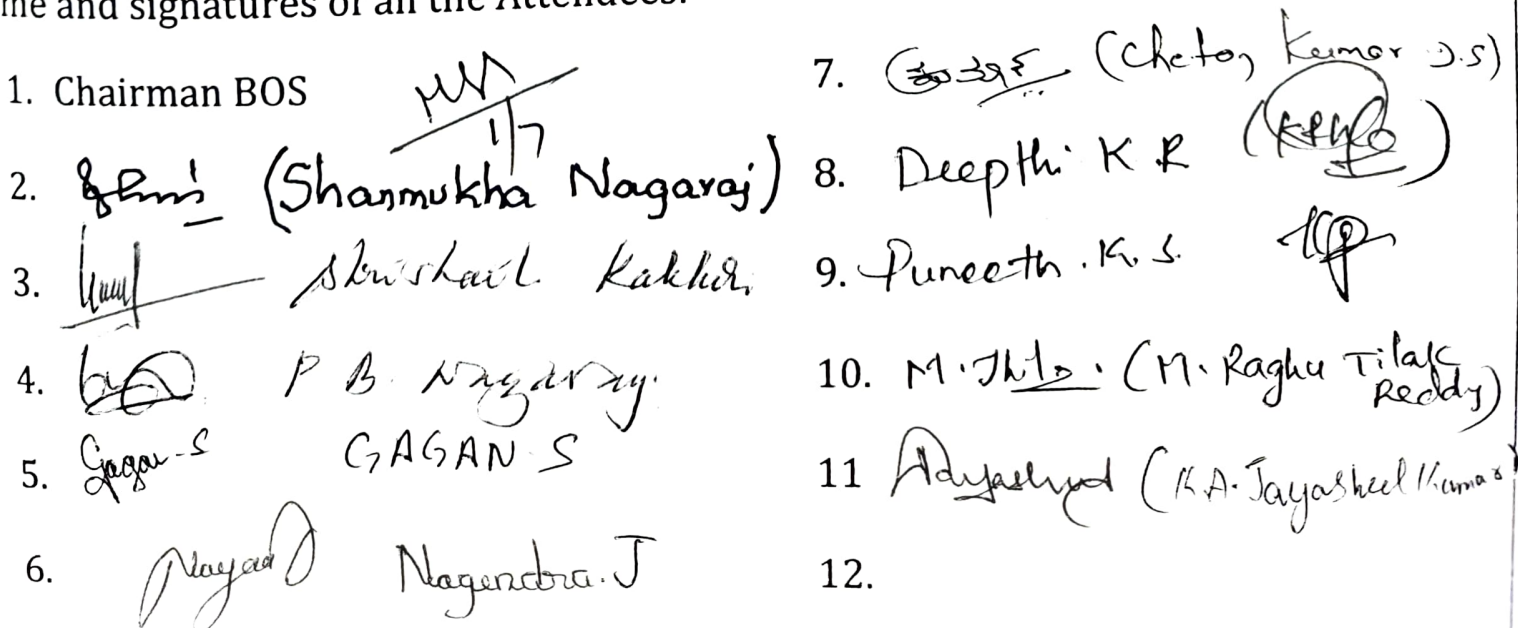 me and signatures of all the Attendees.
1. Chairman BOS
1/7
2. (Shanmukha Nagaraj)
3. Shrishail Kakkeri
4. P B Nagaraj.
5. Gagan-S GAGAN S
6. Nagendra.J
7. (Chetan Kumar D.S)
8. Deepthi K R
9. Puneeth.K.S.
10. (M. Raghu Tilak Reddy)
11 (K.A. Jayasheel Kumar)
12.